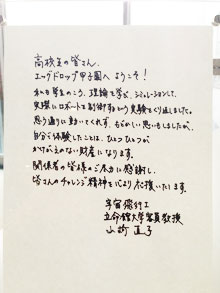 高校生の皆さん、
エッグドロップ甲子園へようこそ！
私も学生のころ、理論を学び、シミュレーションして、
実際にロボットを制御するという実験をくり返しました。
思う通りに動いてくれず、もどかしい思いもしましたが、
自分で体験したことは、ひとつひとつが
かけがえのない財産になります。
関係者の皆様のご尽力に感謝し、
皆さんのチャレンジ精神を心より応援いたします。
宇宙飛行士
立命館大学客員教授
山崎 直子